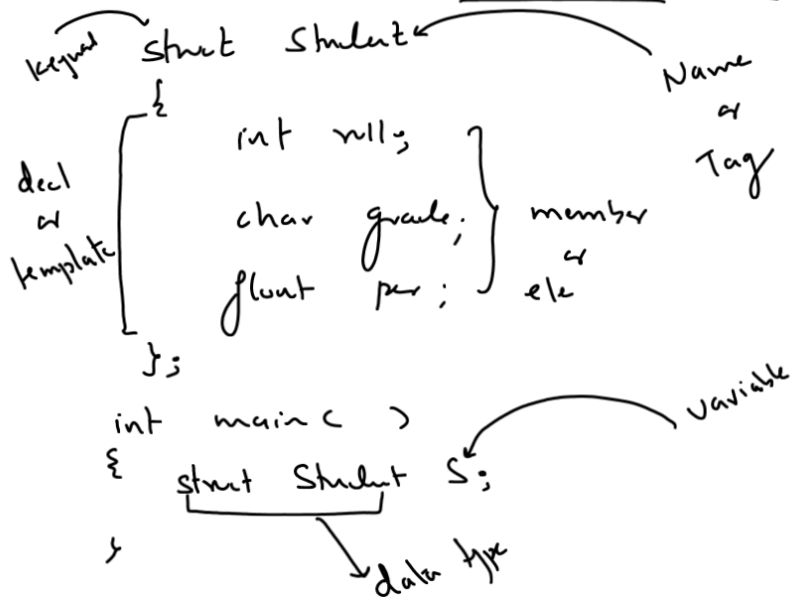 keyword struct Student Name
or
Tag
{
decl
or
template
int roll;
char grade;
float per;
member
or
ele
};
int main( )
{
struct Student S;
variable
}
data type